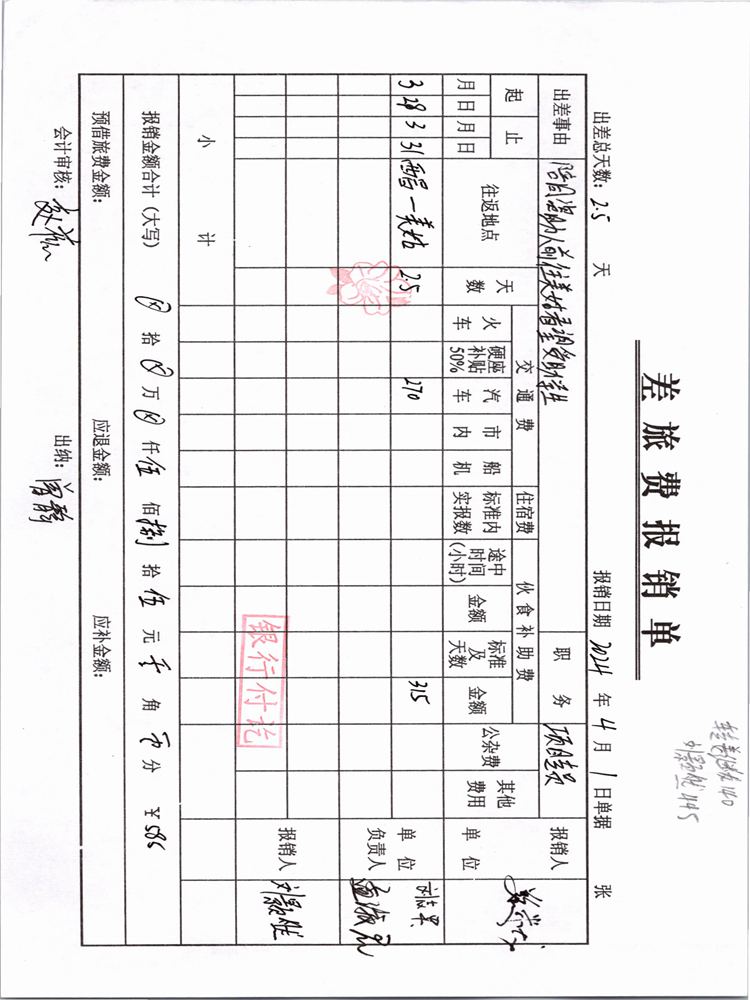 差旅费报销单
140
445
出差总天数：2.5 天 报销日期 2024 年 4 月 1 日单据 张
出差事由 陪同资助人前往美姑看望受助学生 职务 项目专员 报销人
起 止 往返地点 天数 交通费 住宿费 伙食补助费 公杂费 其他费用 单位
月 日 月 日 火车 硬座补贴50% 汽车 市内 船机 标准内实报数 途中时间(小时) 金额 标准及天数 金额
3 28 3 31 西昌一美姑 2.5 270 315 单位负责人
银行付讫
报销人
小计
报销金额合计（大写） ⊗ 拾 ⊗ 万 ⊗ 仟 伍 佰 捌 拾 伍 元 零 角 零 分 ¥ 585
预借旅费金额： 应退金额： 应补金额：
会计审核： 出纳：